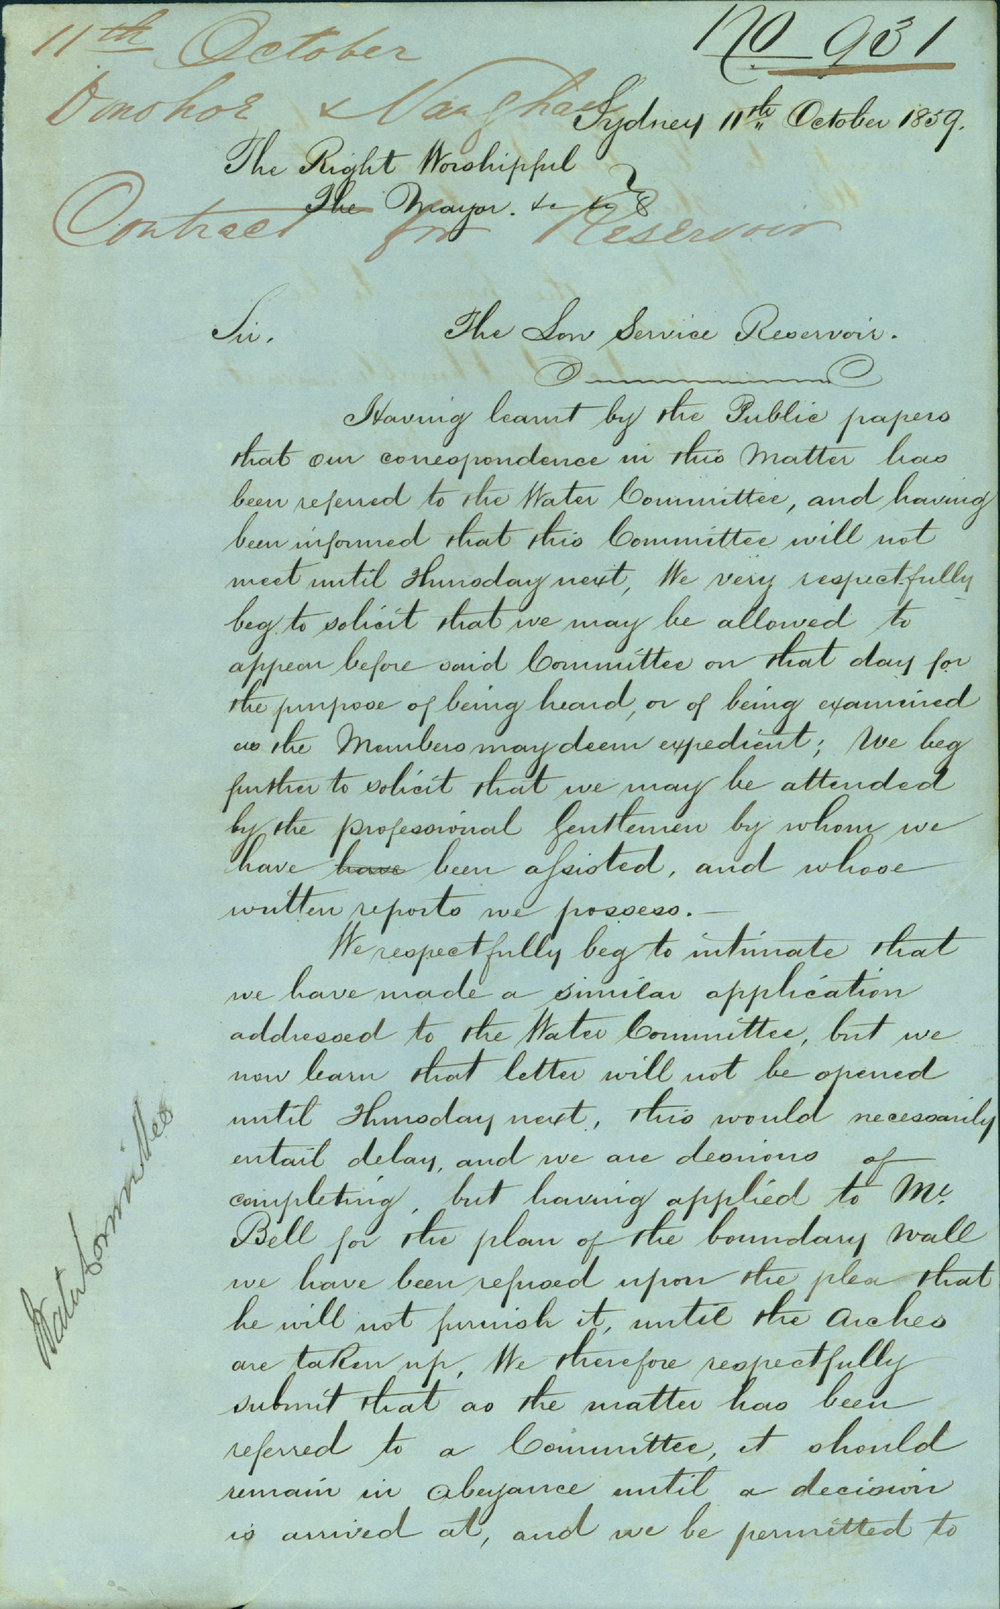 No 931
11th October
Donohoe & Vaughan
Sydney 11th October 1859.
The Right Worshipful
The Mayor. &c &c &
Contract for Reservoir
Sir. The Low Service Reservoir.
Having learnt by the Public papers
that our correspondence in this Matter has
been referred to the Water Committee, and having
been informed that this Committee will not
meet until Thursday next, We very respectfully
beg to solicit that we may be allowed to
appear before said Committee on that day for
the purpose of being heard, or of being examined
as the Members may deem expedient; We beg
further to solicit that we may be attended
by the professional Gentlemen by whom we
have have been assisted, and whose
written reports we possess. —
We respectfully beg to intimate that
we have made a similar application
addressed to the Water Committee, but we
now learn that letter will not be opened
until Thursday next, this would necessarily
entail delay, and we are desirous of
completing, but having applied to Mr.
Bell for the plan of the boundary Wall
we have been refused upon the plea that
he will not furnish it, until the Arches
are taken up, We therefore respectfully
submit that as the matter has been
referred to a Committee, it should
remain in abeyance until a decision
is arrived at, and we be permitted to
Water Committee